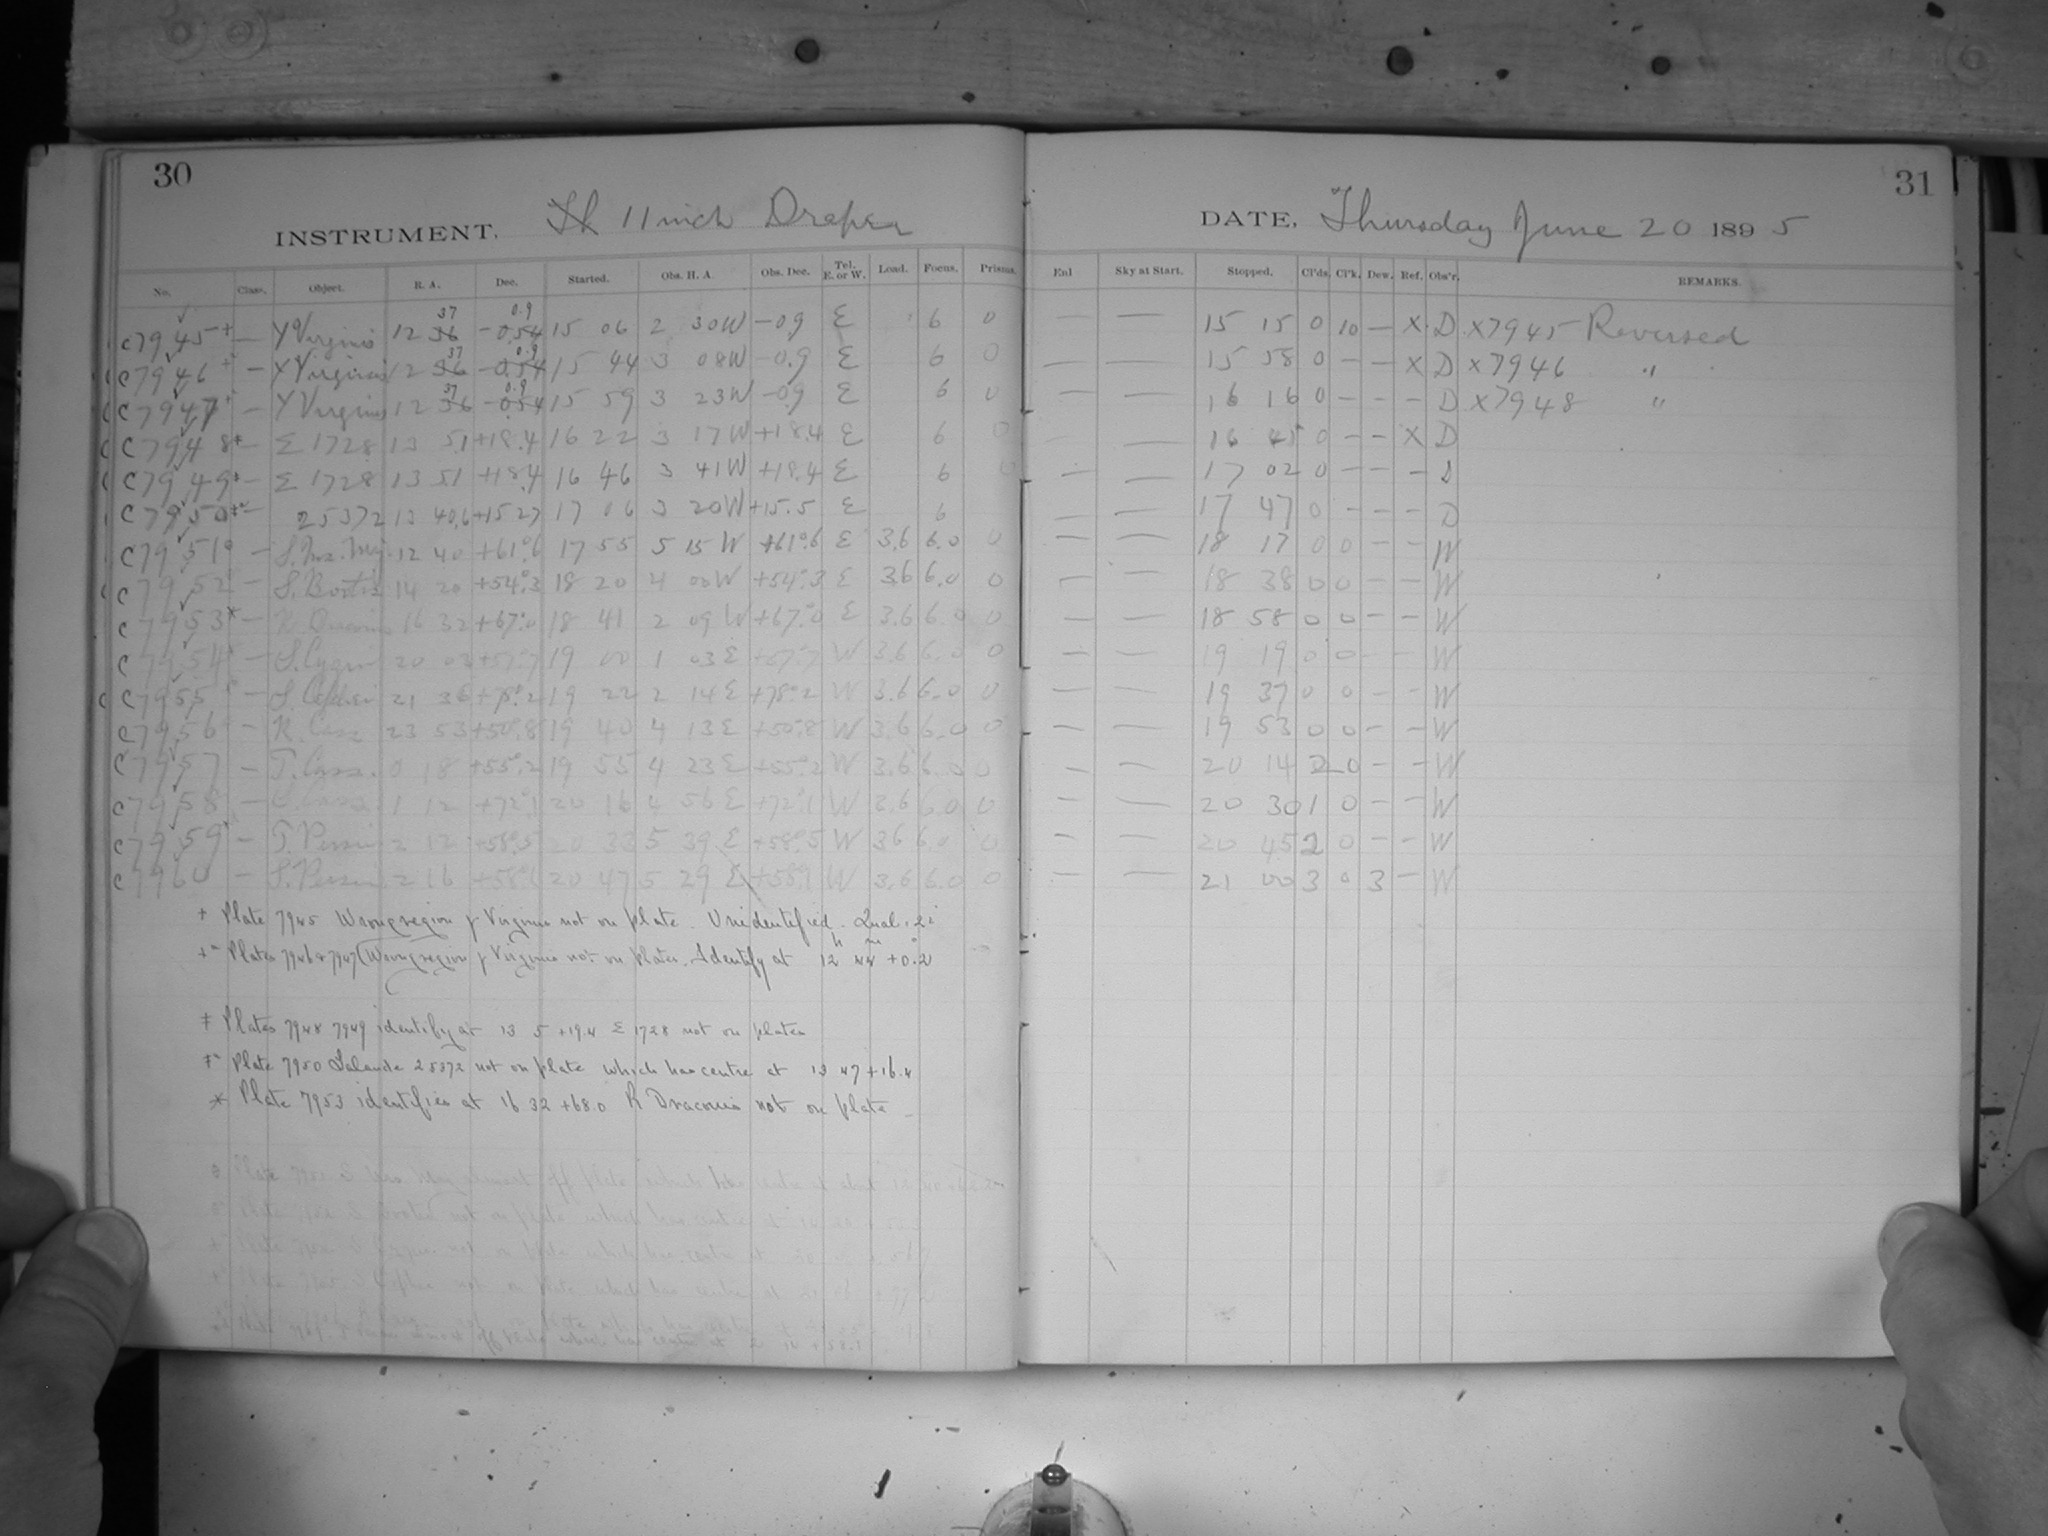 30
INSTRUMENT, 11 inch Draper
No. Class. Object. R. A. Dec. Started. Obs. H. A. Obs. Dec. Tel. E. or W. Load. Focus. Prisms.
37 0.9
C7945+ — γ Virginis 12 36 -0.54 15 06 2 30W -0.9 E 6 0
37 0.9
C7946+ — γ Virginis 12 36 -0.54 15 44 3 08W -0.9 E 6 0
37 0.9
C7947+ — γ Virginis 12 36 -0.54 15 59 3 23W -0.9 E 6 0
C7948 — Σ 1728 13 51 +18.4 16 22 3 17W +18.4 E 6 0
C7949 — Σ 1728 13 51 +18.4 16 46 3 41W +18.4 E 6 0
C7950 — 25372 13 40.6 +15 27 17 06 3 20W +15.5 E 6
C7951 — S. Urs. Maj. 12 40 +61°.6 17 55 5 15 W +61°.6 E 3.6 6.0 0
C7952 — S. Bootis 14 20 +54°.3 18 20 4 00W +54°.3 E 3.6 6.0 0
C7953* — R. Draconis 16 32 +67°.0 18 41 2 09 W +67°.0 E 3.6 6.0 0
C7954 — S. Cygni 20 03 +57°.7 19 00 1 03 E +57°.7 W 3.6 6.0 0
C7955 — S. Cephei 21 36 +78°.2 19 22 2 14 E +78°.2 W 3.6 6.0 0
C7956 — R. Cass 23 53 +50°.8 19 40 4 13 E +50°.8 W 3.6 6.0 0
C7957 — T. Cass. 0 18 +55°.2 19 55 4 23 E +55°.2 W 3.6 6.0 0
C7958 — S. Cass. 1 12 +72°.1 20 16 4 56 E +72°.1 W 3.6 6.0 0
C7959 — T. Persei 2 12 +58°.5 20 33 5 39 E +58°.5 W 3.6 6.0 0
C7960 — S. Persei 2 16 +58°.1 20 47 5 29 E +58°.1 W 3.6 6.0 0
+ Plate 7945 Wrong region γ Virginis not on plate. Unidentified. Qual. 2
+" Plates 7946 & 7947 (Wrong region) γ Virginis not on plates. Identify at 12h 44m +0°.2
‡ Plates 7948 7949 identify at 13 5 +19.4 Σ 1728 not on plates
‡" Plate 7950 Lalande 25372 not on plate which has centre at 13 47 +16.4
* Plate 7953 identifies at 16 32 +68.0 R Draconis not on plate
31
DATE, Thursday June 20 1895
Enl Sky at Start. Stopped. Cl'ds. Cl'k. Dew. Ref. Obs'r. REMARKS.
— — 15 15 0 10 — X D X7945 Reversed
— — 15 58 0 – – X D X7946 "
— — 16 16 0 – – – D X7948 "
— 16 45 0 – – X D
— — 17 02 0 – – – D
— — 17 47 0 – – – D
— — 18 17 0 0 – – W
— — 18 38 0 0 – – W
— — 18 58 0 0 – – W
— — 19 19 0 0 – – W
— — 19 37 0 0 – – W
— — 19 53 0 0 – – W
— — 20 14 2 0 – – W
— — 20 30 1 0 – – W
— — 20 45 2 0 – – W
— — 21 00 3 0 3 – W